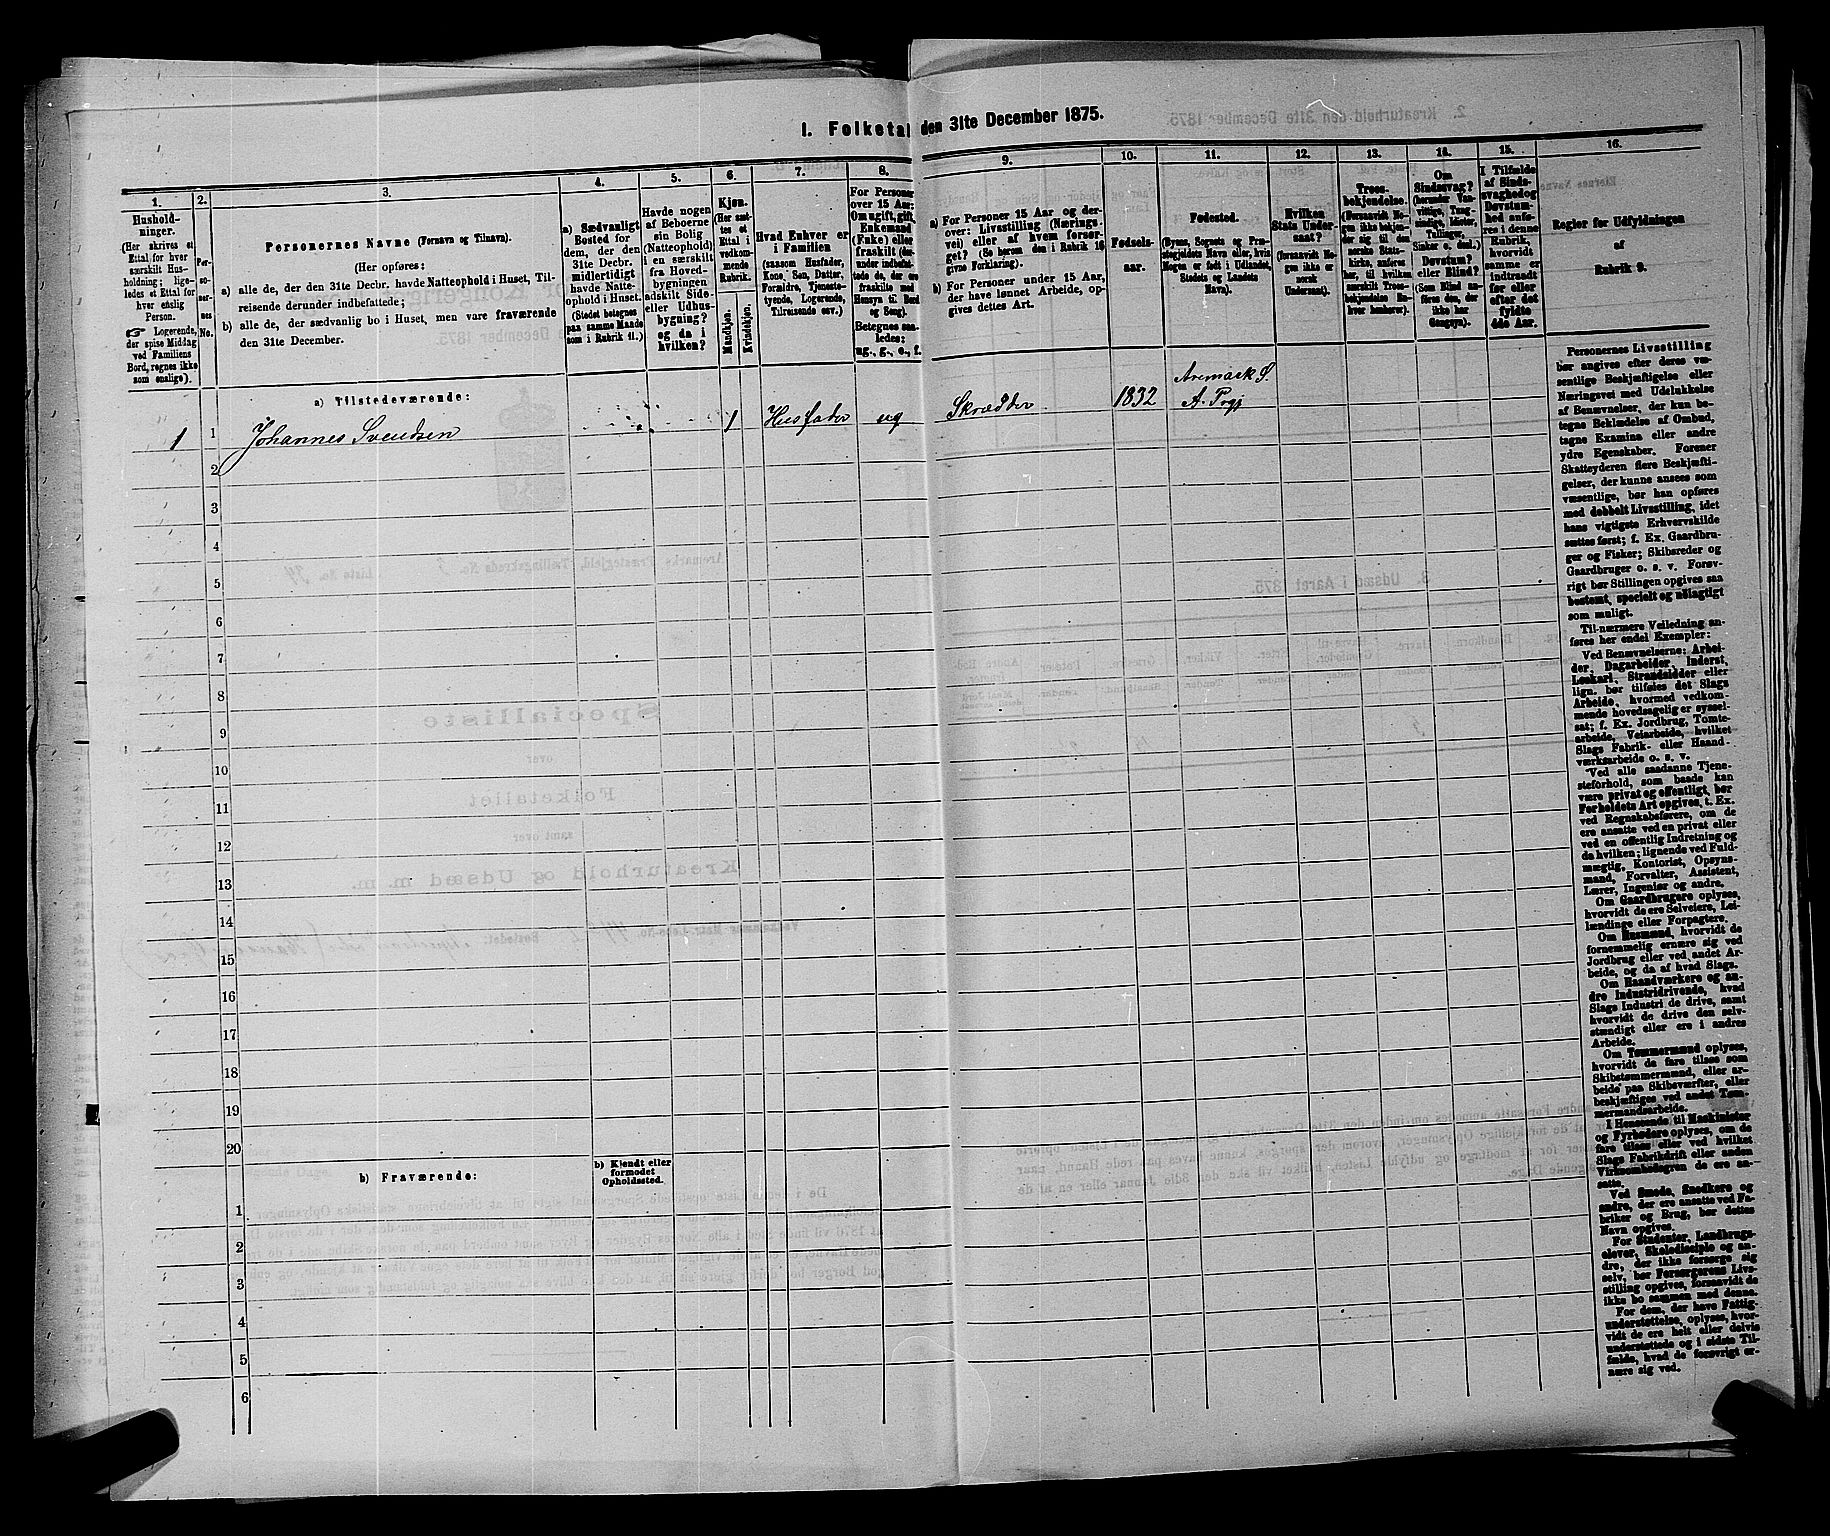 I. Folketal den 31te December 1875.
1.
Hushold-
ninger.
(Her skrives et
Ettal for hver
særskilt Hus-
holdning; lige-
ledes et Ettal for
hver enslig
Person.
☞ Logerende,
der spise Middag
ved Familiens
Bord, regnes ikke
som enslige).
2.
Per-
so-
ner-
nes
No.
3.
Personernes Navne (Fornavn og Tilnavn).
(Her opføres:
a) alle de, der den 31te Decbr. havde Natteophold i Huset, Til-
reisende derunder indbefattede;
b) alle de, der sædvanlig bo i Huset, men vare fraværende
den 31te December.
4.
a) Sædvanligt
Bosted for
dem, der den
31te Decbr.
midlertidigt
havde Natte-
ophold i Huset.
(Stedet betegnes
paa samme Maade
som i Rubrik 11.)
5.
Havde nogen
af Beboerne
sin Bolig
(Natteophold)
i en særskilt
fra Hoved-
bygningen
adskilt Side-
eller Udhus-
bygning?
og da i
hvilken?
6.
Kjøn.
(Her sæt-
tes et
Ettal i
vedkom-
mende
Rubrik.
Mandkjøn.
Kvindekjøn.
7.
Hvad Enhver er
i Familien
(saasom Husfader,
Kone, Søn, Datter,
Forældre, Tjeneste-
tyende, Logerende,
Tilreisende osv.)
8.
For Personer
over 15 Aar:
Om ugift, gift,
Enkemand
(Enke) eller
fraskilt (der-
under indbefat-
tede de, der ere
fraskilte med
Hensyn til Bord
og Seng).
Betegnes saa-
ledes:
ug., g., e., f.
9.
a) For Personer 15 Aar og der-
over: Livsstilling (Nærings-
vei) eller af hvem forsør-
get? (Se herom den i Rubrik 16
givne Forklaring).
b) For Personer under 15 Aar,
der have lønnet Arbeide, op-
gives dettes Art.
10.
Fødsels-
aar.
11.
Fødested.
(Byens, Sognets og Præ-
stegjeldets Navn eller, hvis
Nogen er født i Udlandet,
Stedets og Landets
Navn).
12.
Hvilken
Stats Under-
saat?
(forsaavidt No-
gen ikke er
norsk
Undersaat).
13.
Troes-
bekjendelse.
(Forsaavidt No-
gen ikke bekjen-
der sig til den
norske Stats-
kirke, anføres
her, til hvilken
særskilt Troes-
bekjendelse En-
hver henhører).
14.
Om
Sindssvag?
(herunder Van-
vittige, Tung-
sindige, Idioter,
Tullinger,
Sinker o. desl.)
Døvstum?
eller Blind?
(Som Blind an-
føres den, der
ikke har
Gangsyn).
15.
I Tilfælde
af Sinds-
svaghed og
Døvstum-
hed anfø-
res i denne
Rubrik,
hvorvidt
samme er
indtraadt
før eller
efter det
fyldte
4de Aar.
16.
Regler for Udfyldningen
af
Rubrik 9.
a) Tilstedeværende:
1 1 Johannes Svendsen 1 Husfader ug Skrædder 1832 Aremark S.
A. Prgj
2
3
4
5
6
7
8
9
10
11
12
13
14
15
16
17
18
19
20
b) Fraværende:
b) Kjendt eller
formodet
Opholdssted.
1
2
3
4
5
6
Personernes Livsstilling
bør angives efter deres væ-
sentlige Beskjæftigelse eller
Næringsvei med Udelukkelse
af Benævnelser, der kun be-
tegne Beklædelse af Ombud,
tagne Examina eller andre
ydre Egenskaber. Forener
Skatteyderen flere Beskjæfti-
gelser, der kunne ansees som
væsentlige, bør han opføres
med dobbelt Livsstilling, idet
hans vigtigste Erhvervskilde
sættes først; f. Ex. Gaardbru-
ger og Fisker; Skibsreder og
Gaardbruger o. s. v. Forøv-
rigt bør Stillingen opgives saa
bestemt, specielt og nøiagtigt
som muligt.
Til nærmere Veiledning an-
føres her endel Exempler:
Ved Benævnelserne: Arbei-
der, Dagarbeider, Inderst,
Løskarl, Strandsidder eller
lign. bør tilføies det Slags
Arbeide, hvormed vedkom-
mende hovedsagelig er syssel-
sat; f. Ex. Jordbrug, Tomte-
arbeide, Veiarbeide, hvilket
Slags Fabrik- eller Haand-
værksarbeide o. s. v.
Ved alle saadanne Tjene-
steforhold, som baade kan
være privat og offentligt, bør
Forholdets Art opgives, t. Ex.
ved Regnskabsførere, om de
ere ansatte ved en privat eller
ved en offentlig Indretning og
da hvilken; lignende ved Fuld-
mægtig, Kontorist, Opsyns-
mand, Forvalter, Assistent,
Lærer, Ingeniør og andre.
Om Gaardbrugere oplyses,
hvorvidt de ere Selveiere, Lei-
lændinge eller Forpagtere.
Om Husmænd, hvorvidt de
fornemmelig ernære sig ved
Jordbrug eller ved andet Ar-
beide, og da af hvad Slags.
Om Haandværkere og an-
dre Industridrivende, hvad
Slags Industri de drive, samt
hvorvidt de drive den selv-
stændigt eller ere i andres
Arbeide.
Om Tømmermænd oplyses,
hvorvidt de fare tilsøs som
Skibstømmermænd, eller ar-
beide paa Skibsværfter, eller
beskjæftiges ved andet Tøm-
mermandsarbeide.
I Henseende til Maskinister
og Fyrbødere oplyses, om de
fare tilsøs eller ved hvilket
Slags Fabrikdrift eller anden
Virksomhedsgren de ere an-
satte.
Ved Smede, Snedkere og
andre, der ere ansatte ved Fa-
briker og Brug, bør dettes
Navn opgives.
For Studenter, Landbrugs-
elever, Skoledisciple og an-
dre, der ikke forsørge sig
selv, bør Forsørgerens Livs-
stilling opgives, forsaavidt de
ikke bo sammen med denne.
For dem, der have Fattig-
understøttelse, oplyses, hvor-
vidt de ere helt eller delvis
understøttede og i sidste Til-
fælde, hvad de forøvrigt er-
nære sig ved.